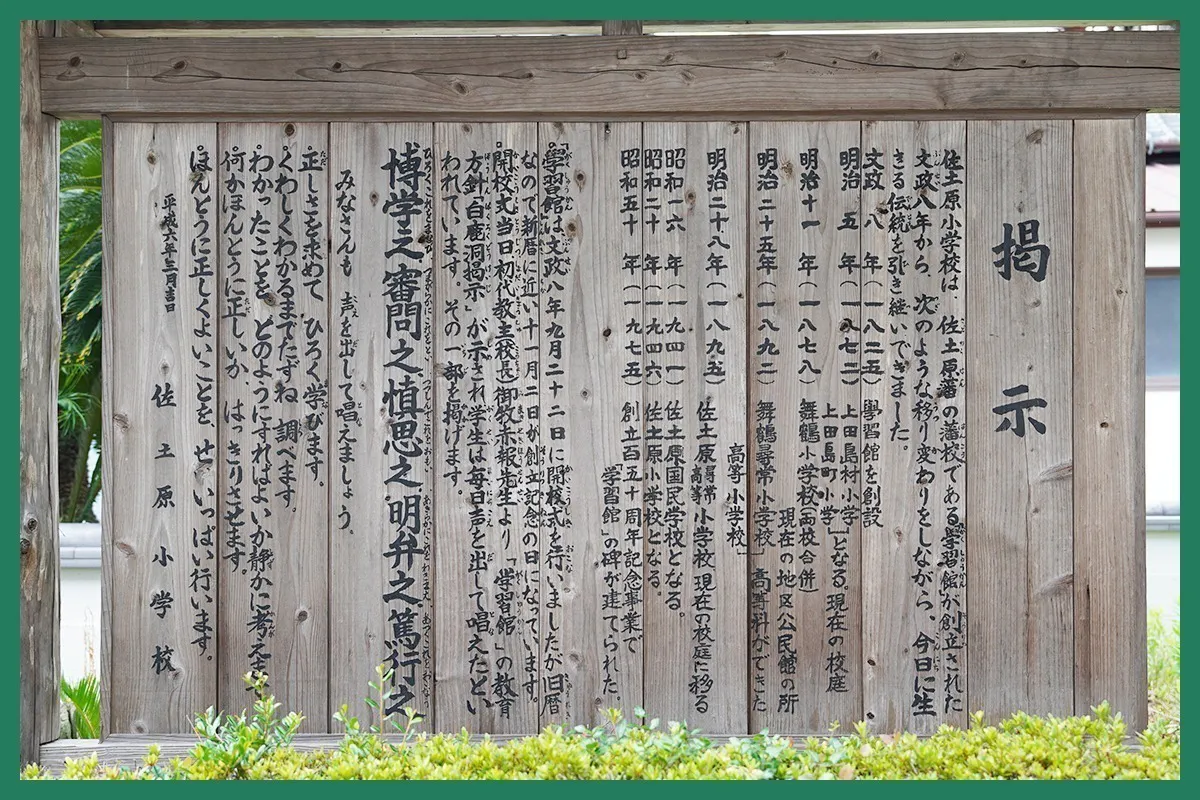 掲示
佐土原小学校は、佐土原藩の藩校である学習館が創立された
文政八年から、次のような移り変わりをしながら、今日に生
きる伝統を引き継いできました。
文政 八 年(一八二五)學習館を創設
明治 五 年(一八七二)上田島村小学 上田島町小学 となる。現在の校庭
明治十一 年(一八七八)舞鶴小学校(両校合併)
現在の地区公民館の所
明治二十五年(一八九二)舞鶴尋常小学校 高等科ができた
高等小学校
明治二十八年(一八九五)佐土原尋常高等小学校 現在の校庭に移る
昭和一六 年(一九四一)佐土原国民学校となる。
昭和二十 年(一九四六)佐土原小学校となる。
昭和五十 年(一九七五)創立百五十周年記念事業で
「学習館」の碑が建てられた。
「學習館」は文政八年九月二十二日に開校式を行いましたが旧暦
なので新暦に近い十一月二日が創立記念の日になっています。
開校式当日初代教主(校長)御牧赤報先生より「学習館」の教育
方針「白鹿洞掲示」が示され学生は毎日声を出して唱えたとい
われています。その一部を掲げます。
博学之審問之慎思之明弁之篤行之
みなさんも 声を出して唱えましょう。
正しさを求めて ひろく学びます。
くわしくわかるまでたずね 調べます。
わかったことを どのようにすればよいか静かに考えます
何かほんとうに正しいか、はっきりさせます。
ほんとうに正しくよいことを、せいいっぱい行います。
平成六年三月吉日
佐土原小学校